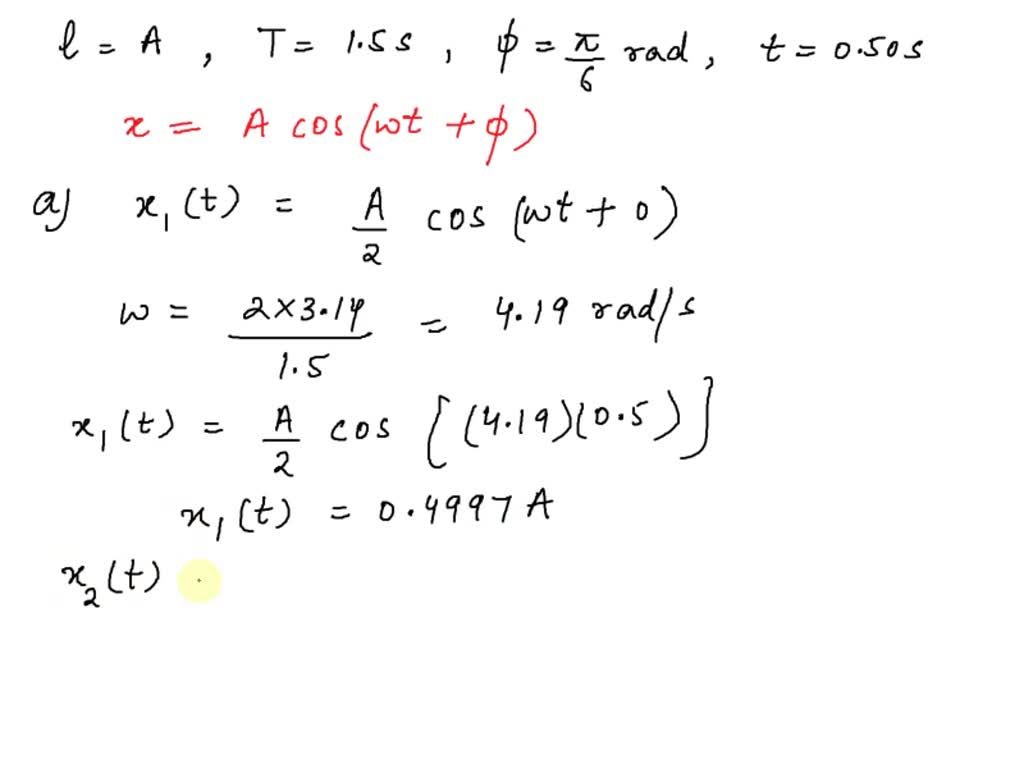 l = A , T = 1.5 s , ϕ = π/6 rad , t = 0.50s
x = A cos (wt + ϕ)
a) x₁(t) = A/2 cos (wt + 0)
w = 2×3.14/1.5 = 4.19 rad/s
x₁(t) = A/2 cos [(4.19)(0.5)]
x₁(t) = 0.4997 A
x₂(t)